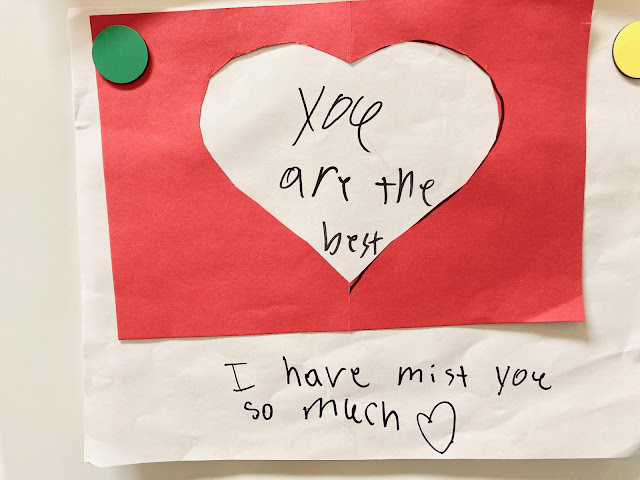 you
are the
best
I have mist you
so much♡